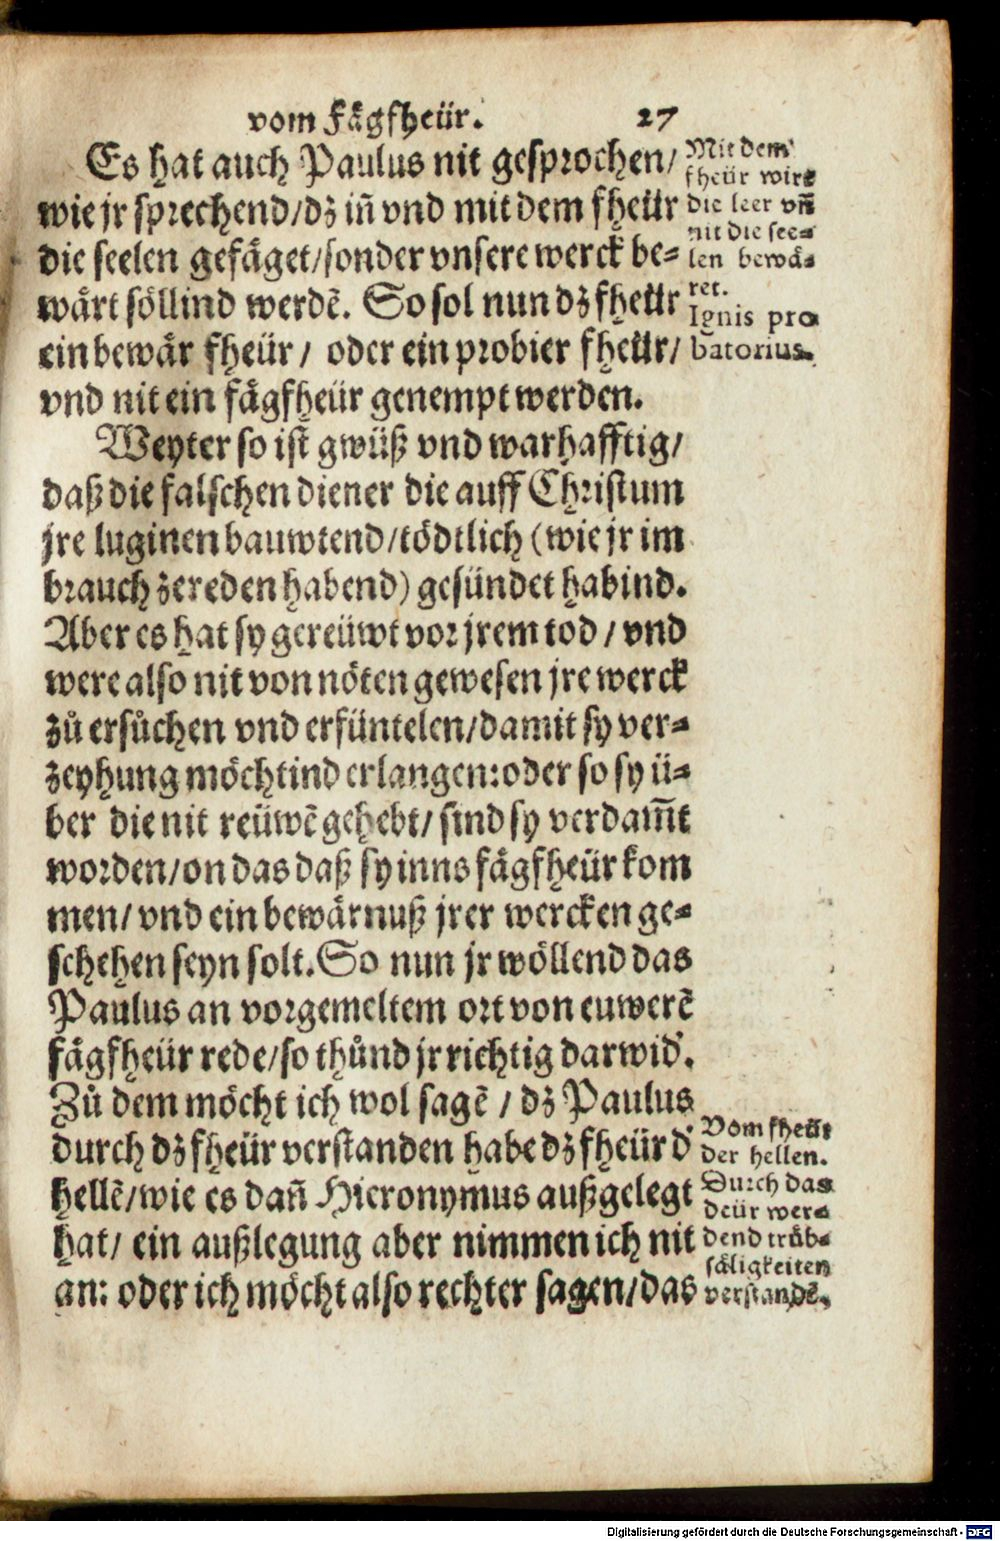 vom Fågfheür. 27
Es hat auch Paulus nit gesprochen/
wie jr sprechend/dz iñ vnd mit dem fheür
die seelen gefåget/sonder vnsere werck be-
wårt söllind werdē. So sol nun dz fheür
ein bewår fheür/ oder ein probier fheür/
vnd nit ein fågfheür genempt werden.
Weyter so ist gwüß vnd warhafftig/
daß die falschen diener die auff Christum
jre luginen bauwtend/tödtlich (wie jr im
brauch ze reden habend) gesündet habind.
Aber es hat sy gereüwt vor jrem tod/ vnd
were also nit von nöten gewesen jre werck
zů ersůchen vnd erfüntelen/damit sy ver-
zeyhung möchtind erlangen: oder so sy ü-
ber die nit reüwē gehebt/ sind sy verdam̄t
worden/on das daß sy inns fågfheür kom
men/ vnd ein bewårnuß jrer wercken ge-
schehen seyn solt. So nun jr wöllend das
Paulus an vorgemeltem ort von euwerē
fågfheür rede/so thůnd jr richtig darwid'.
Zů dem möcht ich wol sagē / dz Paulus
durch dz fheür verstanden habe dz fheür d'
hellē/wie es dañ Hieronymus außgelegt
hat/ ein außlegung aber nimmen ich nit
an: oder ich möcht also rechter sagen/das
Mit dem
fheür wirt
die leer vñ
nit die see-
len bewå-
ret.
Ignis pro
batorius.
Vom fheür
der hellen.
Durch das
deür wer-
dend trůb-
såligkeiten
verstandē.
Digitalisierung gefördert durch die Deutsche Forschungsgemeinschaft - DFG